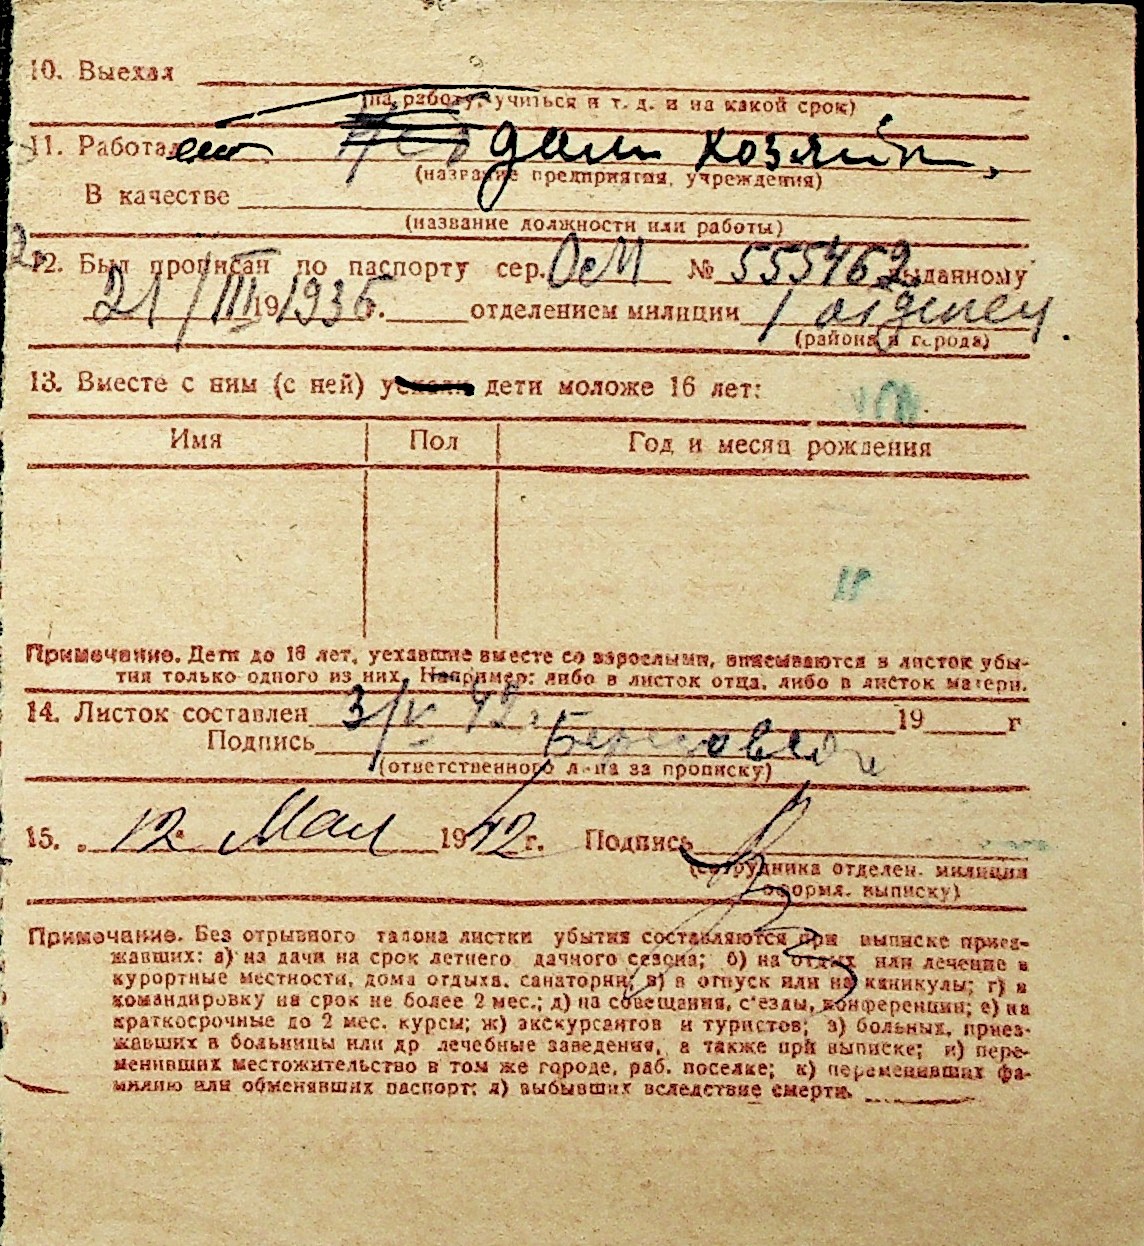 10. Выехал
(на работу, учиться и т. д. и на какой срок)
11. Работал дом хозяйк,
(название предприятия, учреждения)
В качестве
(название должности или работы)
12. Был прописан по паспорту сер. ОеМ № 555462 выданному
21/III 19 1936 г. отделением милиции
(района и города)
13. Вместе с ним (с ней) дети моложе 16 лет:
Имя Пол Год и месяц рождения
Примечание. Дети до 16 лет, уехавшие вместе со взрослыми, вписываются в листок убы-
тия только одного из них. Например: либо в листок отца, либо в листок матери.
14. Листок составлен 3/V 42 г. 19 г
Подпись
(ответственного лица за прописку)
15. „ 12 " Мая 1942 г. Подпись
(сотрудника отделен. милиции
оформл. выписку)
Примечание. Без отрывного талона листки убытия составляются при выписке приез-
жавших: а) на дачи на срок летнего дачного сезона; б) на отдых или лечение в
курортные местности, дома отдыха, санатории; в) в отпуск или на каникулы; г) в
командировку на срок не более 2 мес.; д) на совещания, с'езды, конференции; е) на
краткосрочные до 2 мес. курсы; ж) экскурсантов и туристов; з) больных, приез-
жавших в больницы или др лечебные заведения, а также при выписке; и) пере-
менивших местожительство в том же городе, раб. поселке; к) переменивших фа-
милию или обменявших паспорт; л) выбывших вследствие смерти.